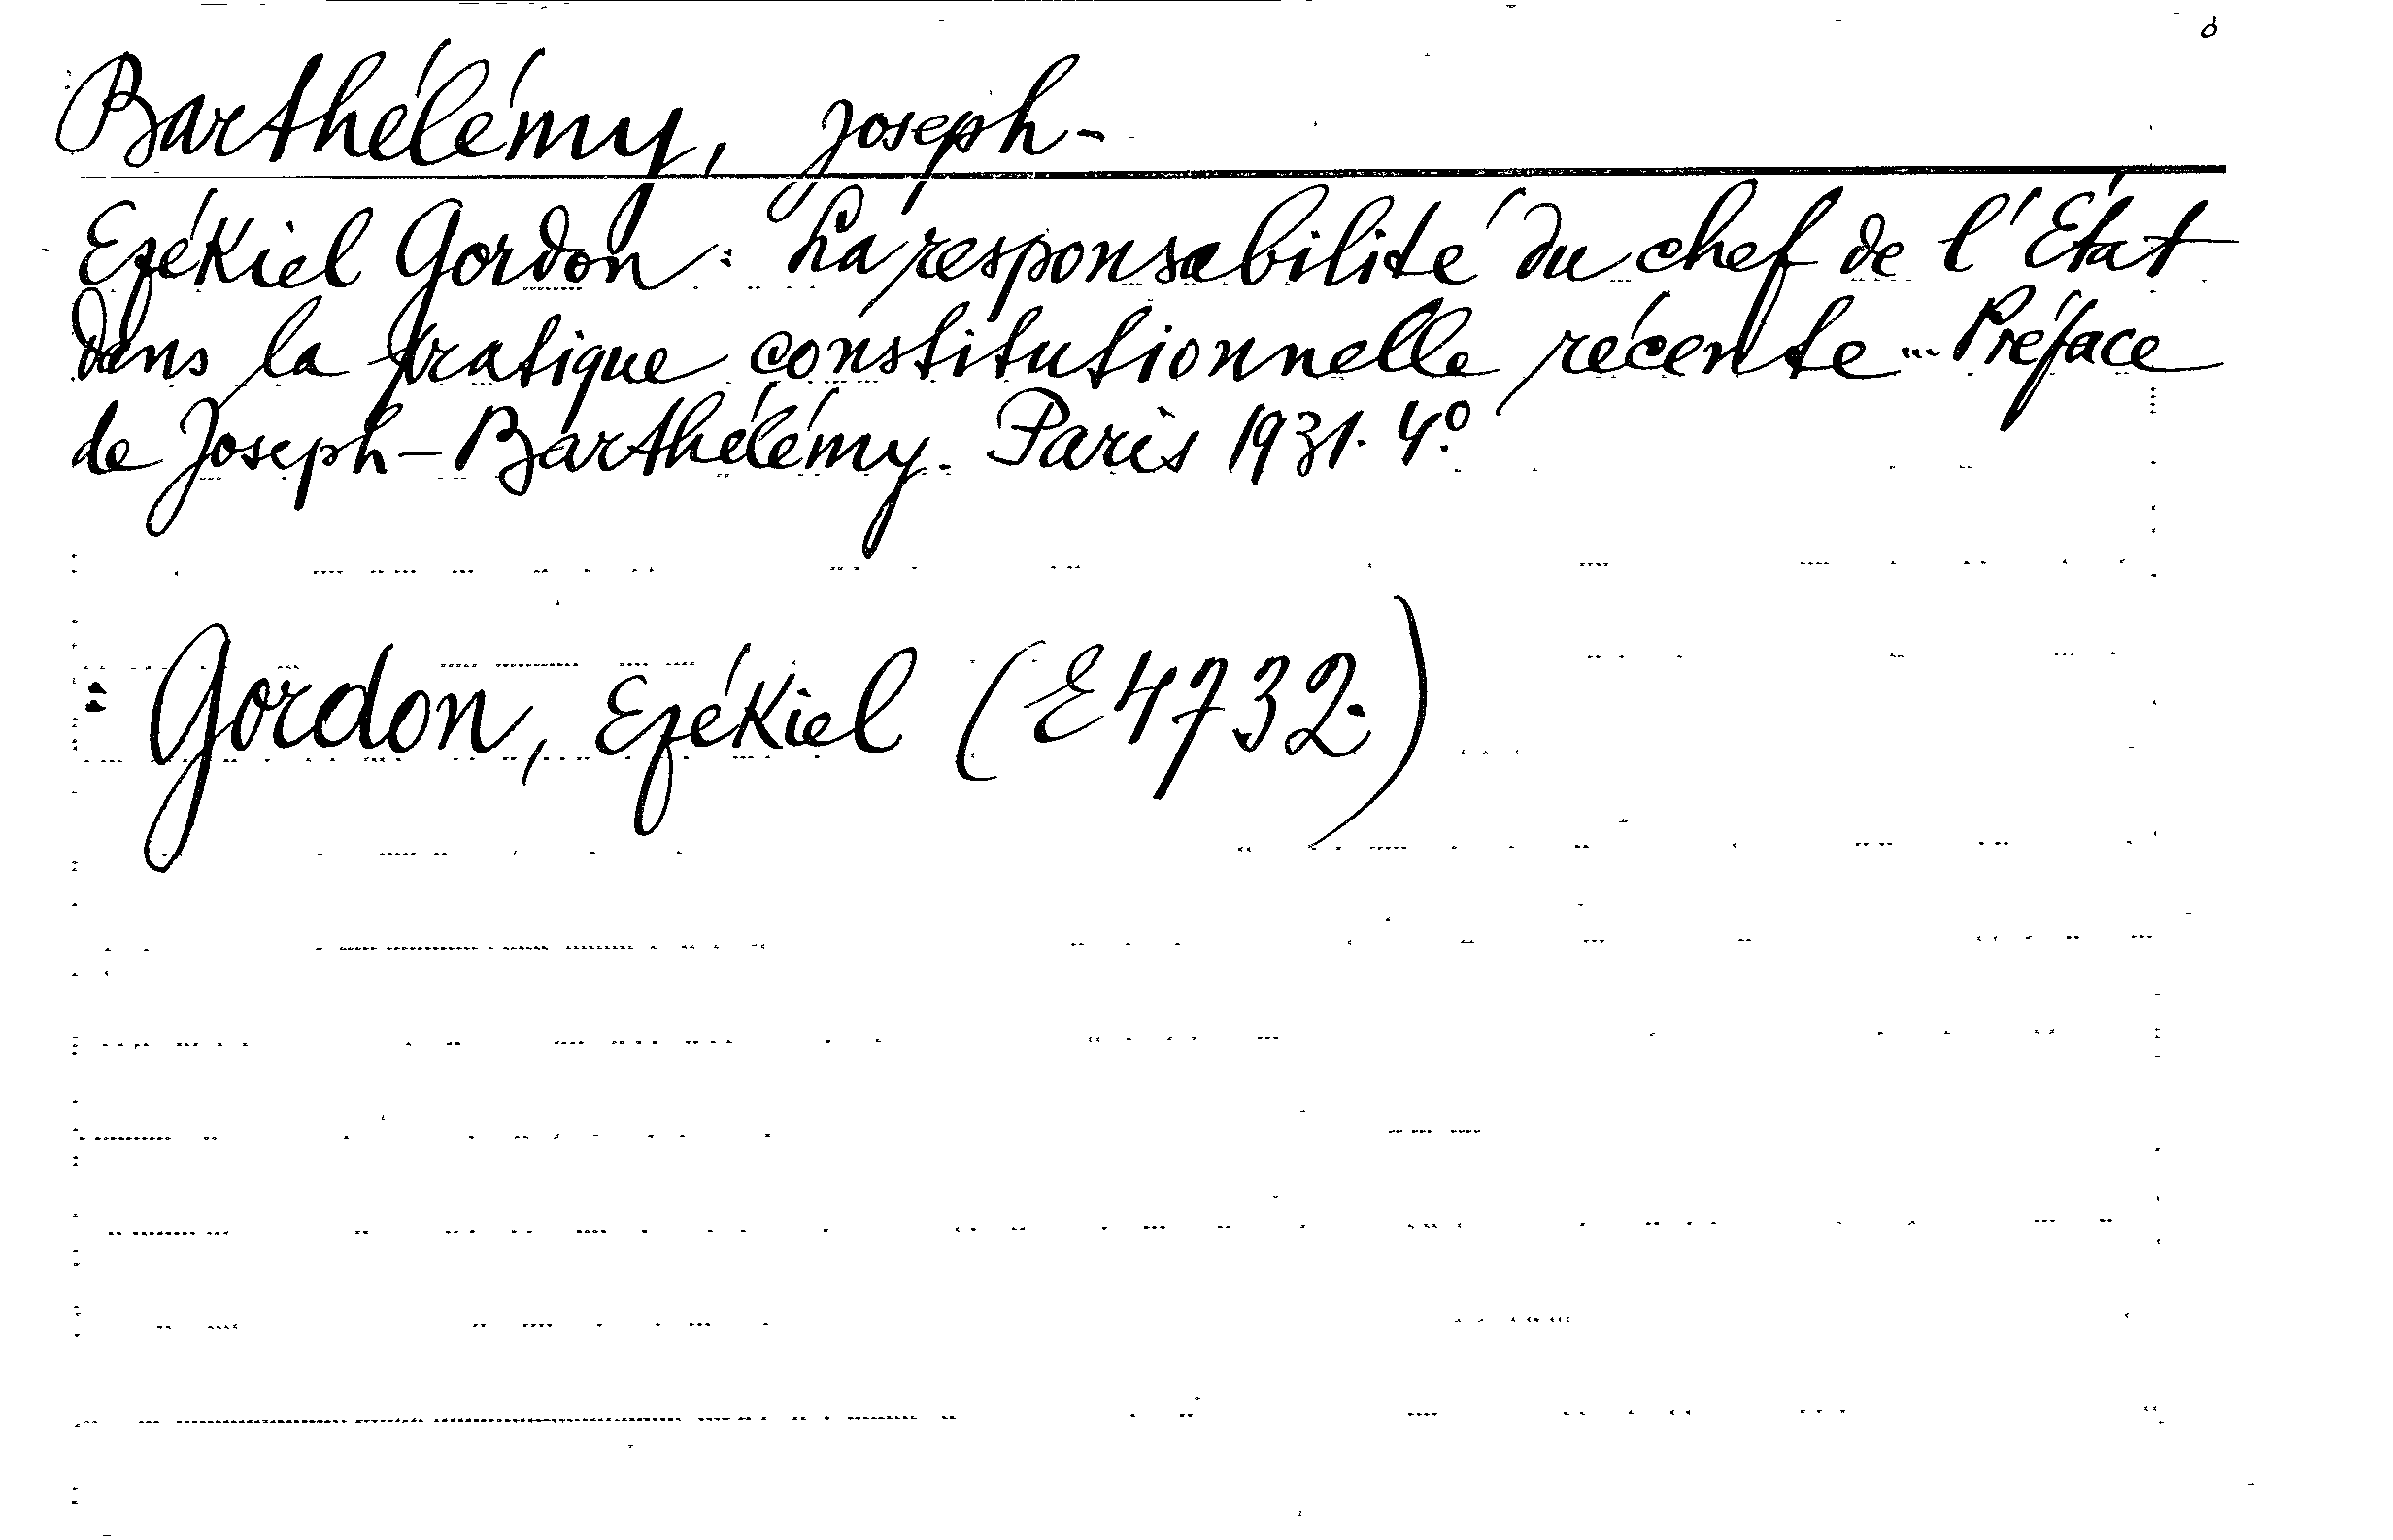 Barthélémy, Joseph-
Ezékiel Gordon: La responsabilité du chef de l'État
dans la pratique constitutionnelle récente... Préface
de Joseph-Barthélémy. Paris 1931. 4º.
= Gordon, Ezékiel (E4732.)